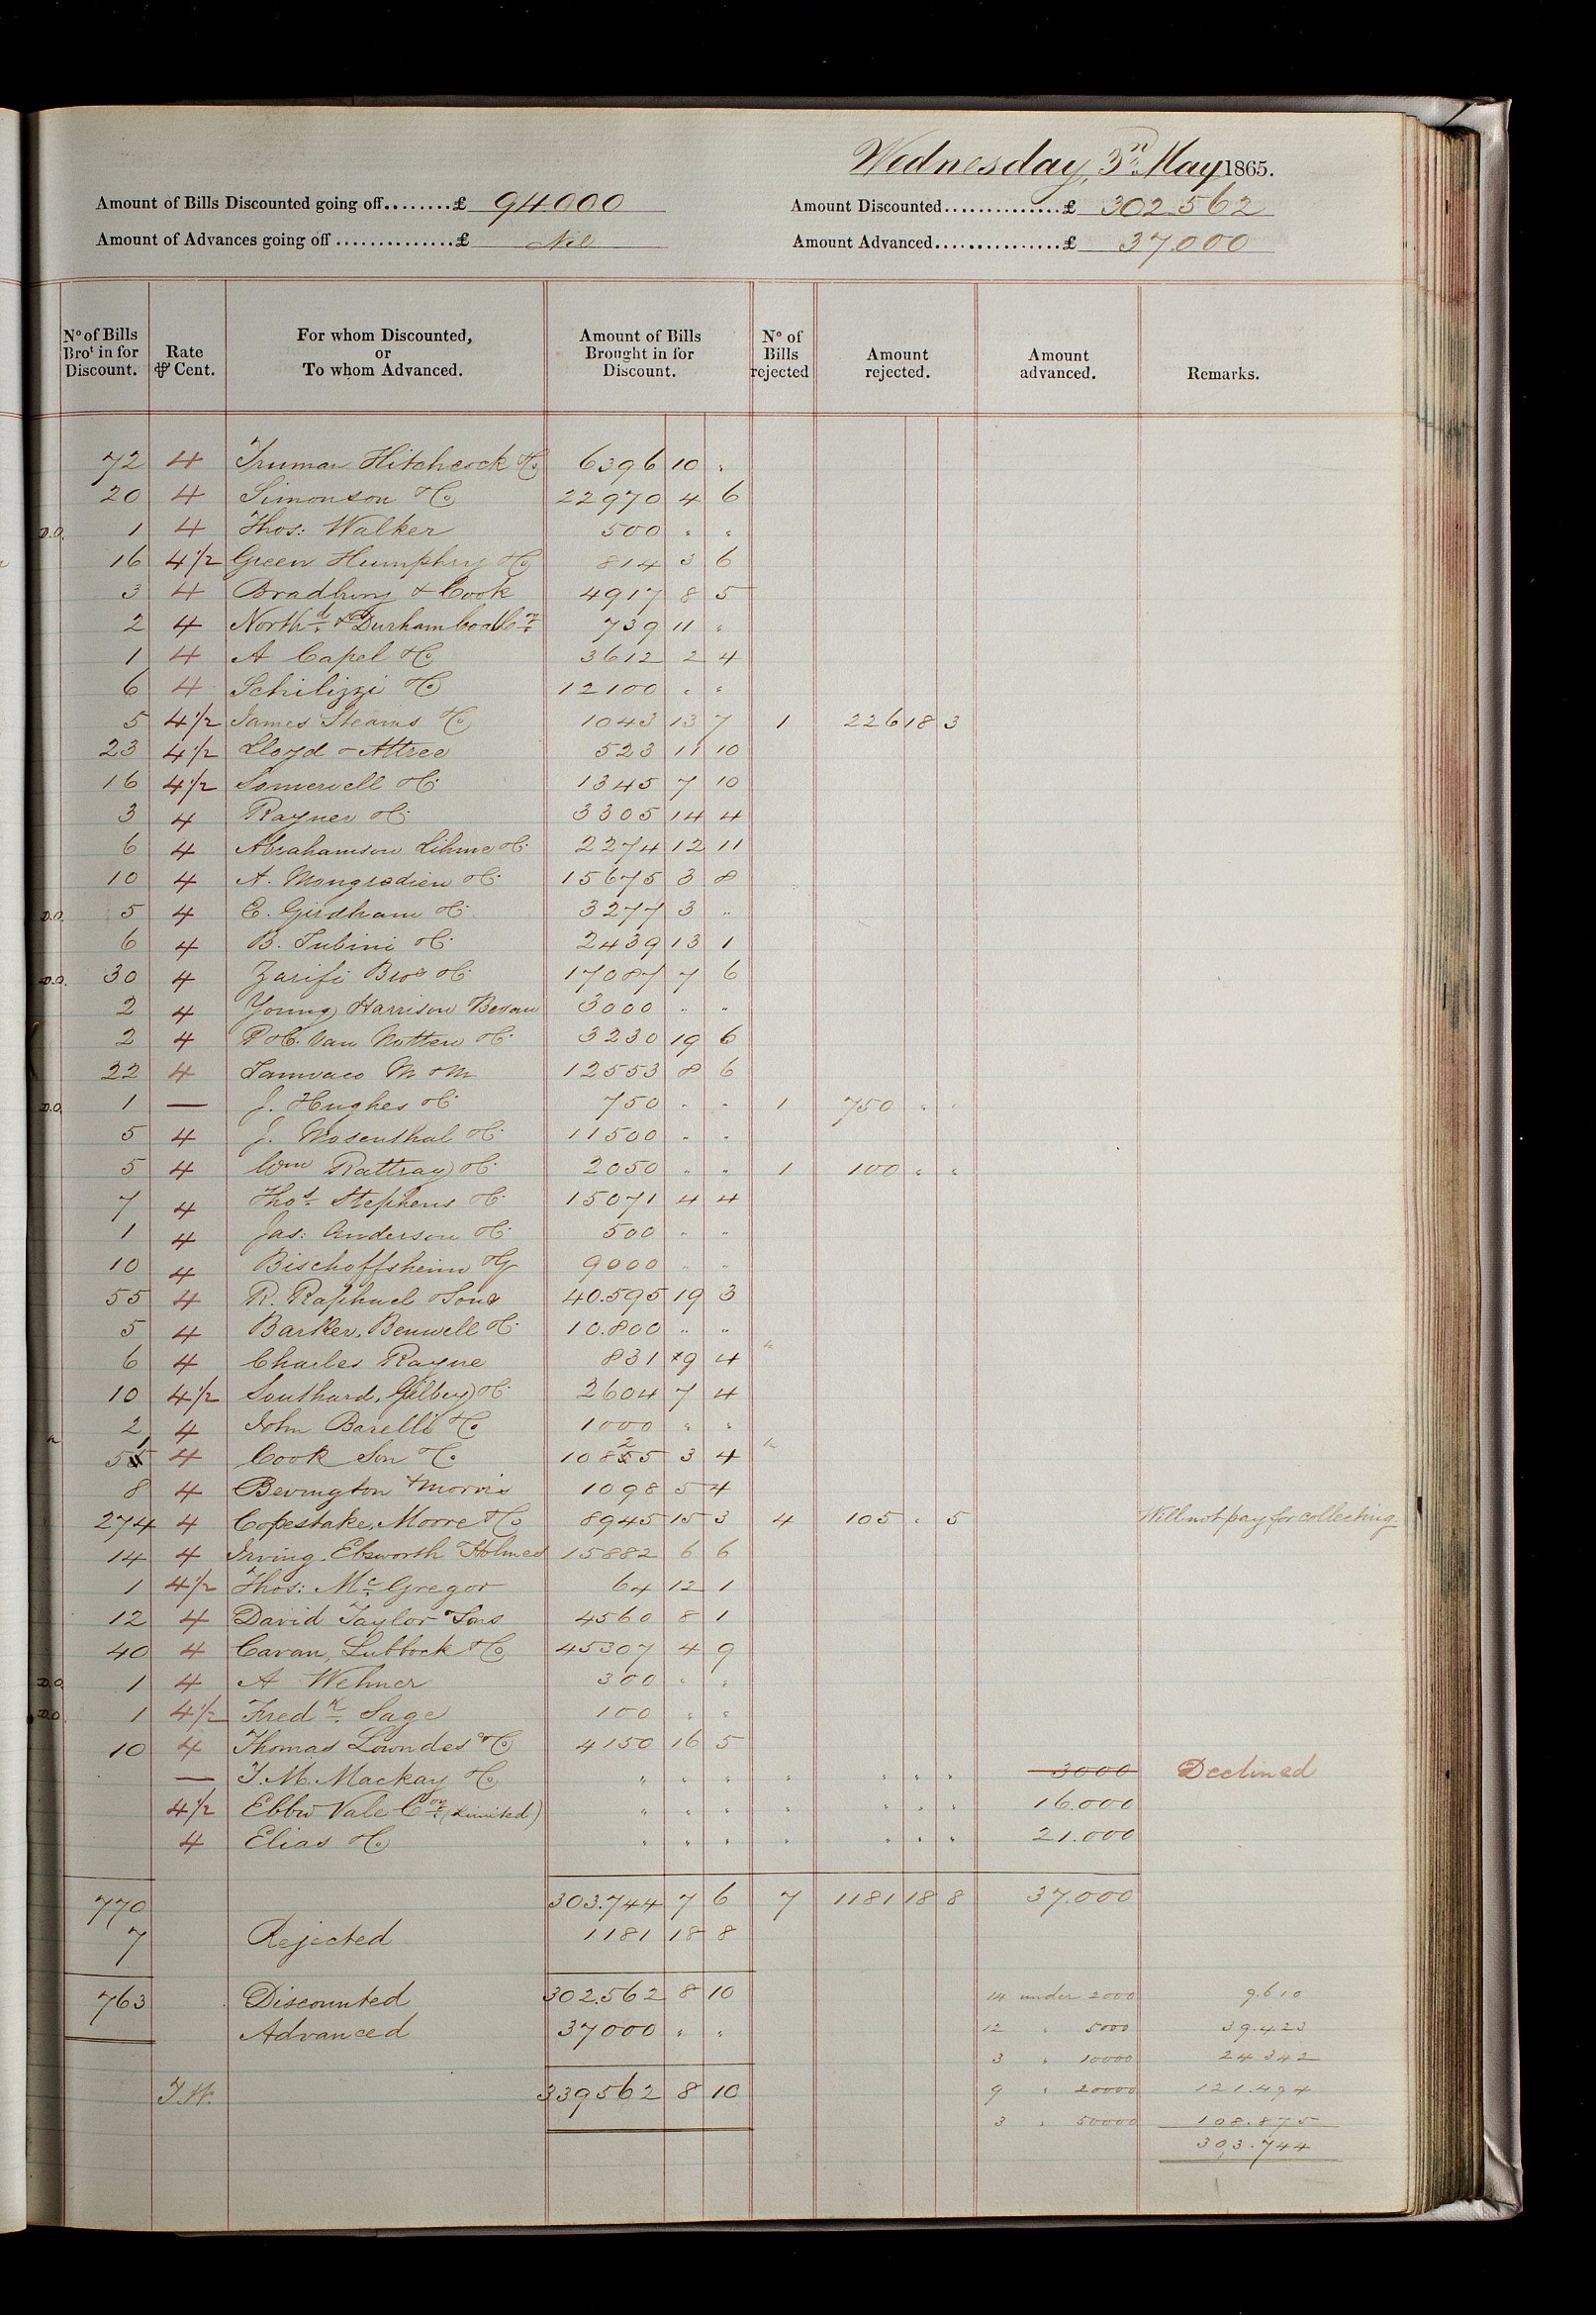 Wednesday, 3rd May 1865.
Amount of Bills Discounted going off........£ 94000 Amount Discounted..............£ 302562
Amount of Advances going off..............£ Nil Amount Advanced................£ 37.000
No of Bills Brot in for Discount. Rate ⅌ Cent. For whom Discounted, or To whom Advanced. Amount of Bills Brought in for Discount. No of Bills rejected Amount rejected. Amount advanced. Remarks.
72 4 Truman Hitchcock &Co 6396 10 "
20 4 Simonson &Co 22970 4 6
D.O. 1 4 Thos: Walker 500 " "
16 4½ Green Humphry &Co 814 3 6
3 4 Bradbury & Cook 4917 8 5
2 4 Northd & Durham Coal Coy 739 11 "
1 4 A Capel &Co 3612 2 4
6 4 Schilizzi &Co 12100 " "
5 4½ James Stearns &Co 1043 13 7 1 226 18 3
23 4½ Lloyd & Attree 523 11 10
16 4½ Somervell &Co 1345 7 10
3 4 Rayner &Co 3305 14 4
6 4 Abrahamson Lihme &Co 2274 12 11
10 4 A. Mongredien &Co 15675 3 8
D.O. 5 4 E. Girdham &Co 3277 3 "
6 4 B. Tubini &Co 2439 13 1
D.O. 30 4 Zarifi Bros &Co 17087 7 6
2 4 Young, Harrison 3000 " "
2 4 P &C. Van Notten &Co 3230 19 6
22 4 Tamvaco M &M 12553 8 6
D.O. 1 — J. Hughes &Co 750 " " 1 750 " "
5 4 J. Mosenthal &Co 11500 " "
5 4 Wm Rattray &Co 2050 " " 1 100 " "
7 4 Thos Stephens &Co 15071 4 4
1 4 Jas: Anderson &Co 500 " "
10 4 Bischoffsheim &G 9000 " "
55 4 R. Raphael &Sons 40.595 19 3
5 4 Barker, Benwell &Co 10.800 " "
6 4 Charles Rayne 831 19 4
10 4½ Southard, Gilbey &Co 2604 7 4
2 4 John Barelli &Co 1000 " "
51 4 Cook Son &Co 10825 3 4
8 4 Bevington & Morris 1098 5 4
274 4 Copestake, Moore &Co 8945 15 3 4 105 " 5 Will not pay for collecting
14 4 Irving Ebsworth &Holmes 15882 6 6
1 4½ Thos: McGregor 64 12 1
12 4 David Taylor &Sons 4560 8 1
40 4 Cavan, Lubbock &Co 45307 4 9
D.O. 1 4 A Wehner 300 " "
D.O. 1 4½ Fredk Sage 100 " "
10 4 Thomas Lowndes &Co 4150 16 5
— T. M. Mackay &Co " " " " " " " 3000 Declined
4½ Ebbw Vale Coy (Limited) " " " " " " " 16.000
4 Elias &Co " " " " " " " 21.000
770 303.744 7 6 7 1181 18 8 37.000
7 Rejected 1181 18 8
763 Discounted 302.562 8 10 14 under 2000 9.610
Advanced 37000 " " 12 " 5000 39.423
3 " 10000 24342
339562 8 10 9 " 20000 121.494
3 " 50000 108.875
303.744